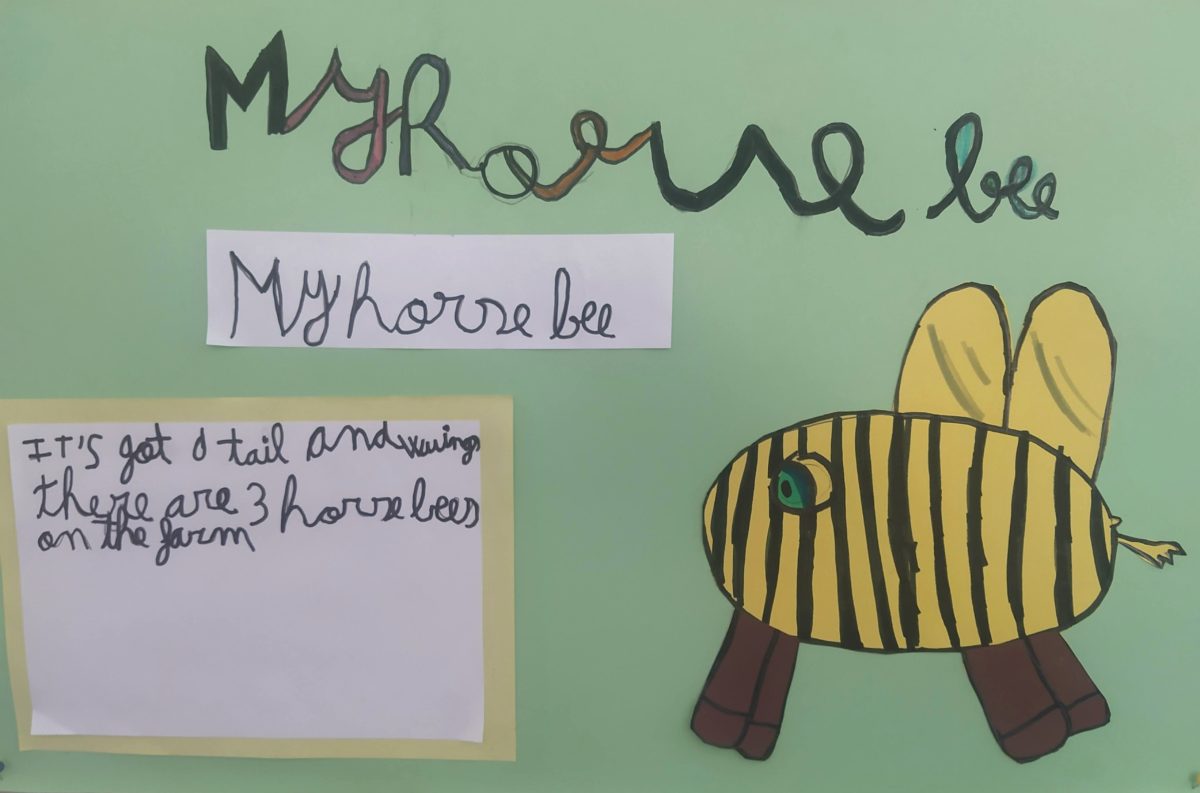 My horse bee
My horse bee
IT's got a tail and wings
there are 3 horse bees
on the farm